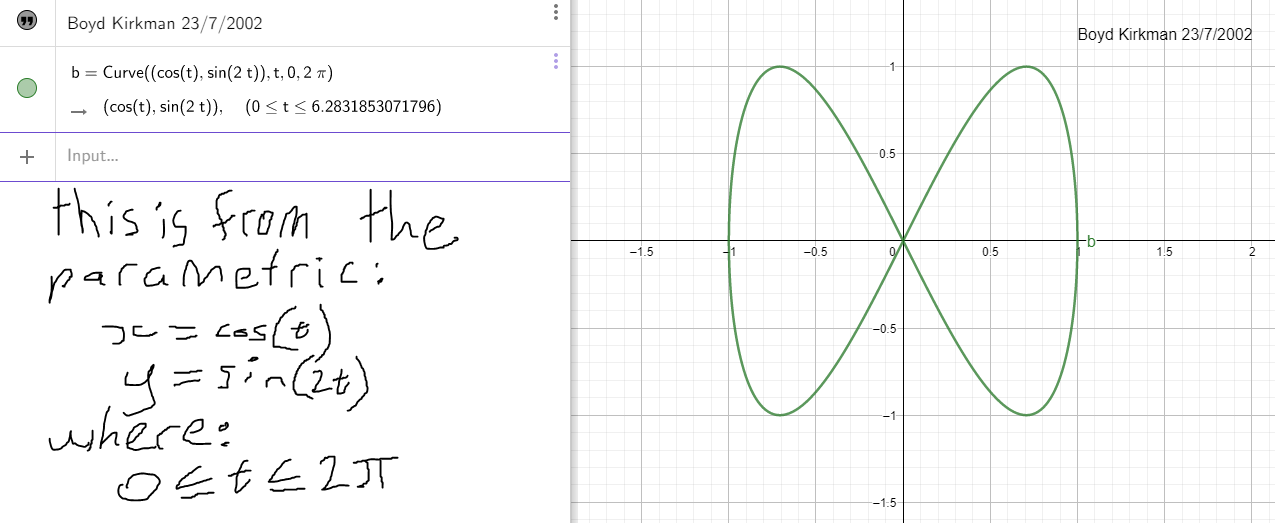 Boyd Kirkman 23/7/2002
b = Curve((cos(t), sin(2 t)), t, 0, 2 π)
→ (cos(t), sin(2 t)), (0 ≤ t ≤ 6.2831853071796)
+ Input...
this is from the
parametric:
x = cos(t)
y = sin(2t)
where:
0 ≤ t ≤ 2π
Boyd Kirkman 23/7/2002
1
0.5
−1.5 −1 −0.5 0 0.5 1 1.5 2
b
−0.5
−1
−1.5